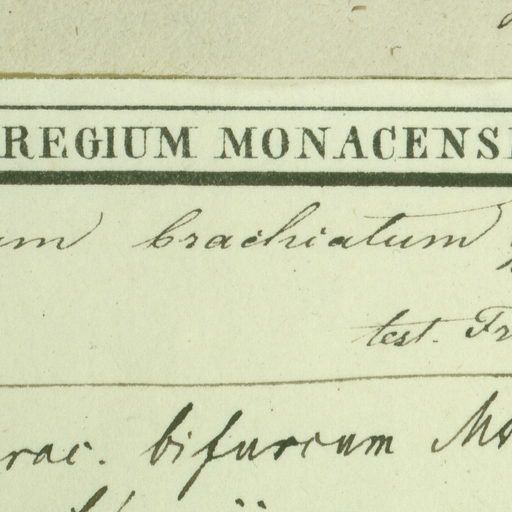 REGIUM MONACENS
um brachiatum
test. Fr
rac. bifurcum M